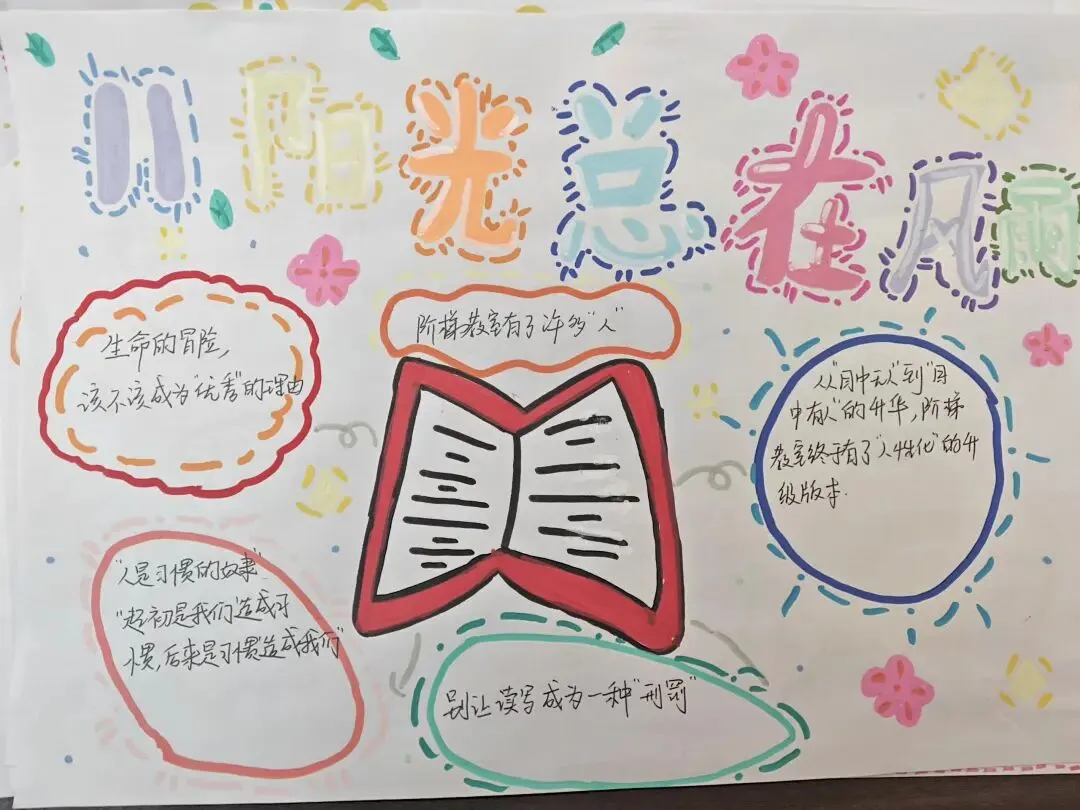 阳光总在风雨
生命的冒险，
该不该成为"优秀"的理由
阶梯教室有了许多"人"
从"目中无人"到"目
中有人"的升华，阶梯
教室终于有了"人性化"的升
级版本.
"人是习惯的奴隶"
"起初是我们"造成习
惯，后来是习惯"造成我们"
别让读写成为一种"刑罚"